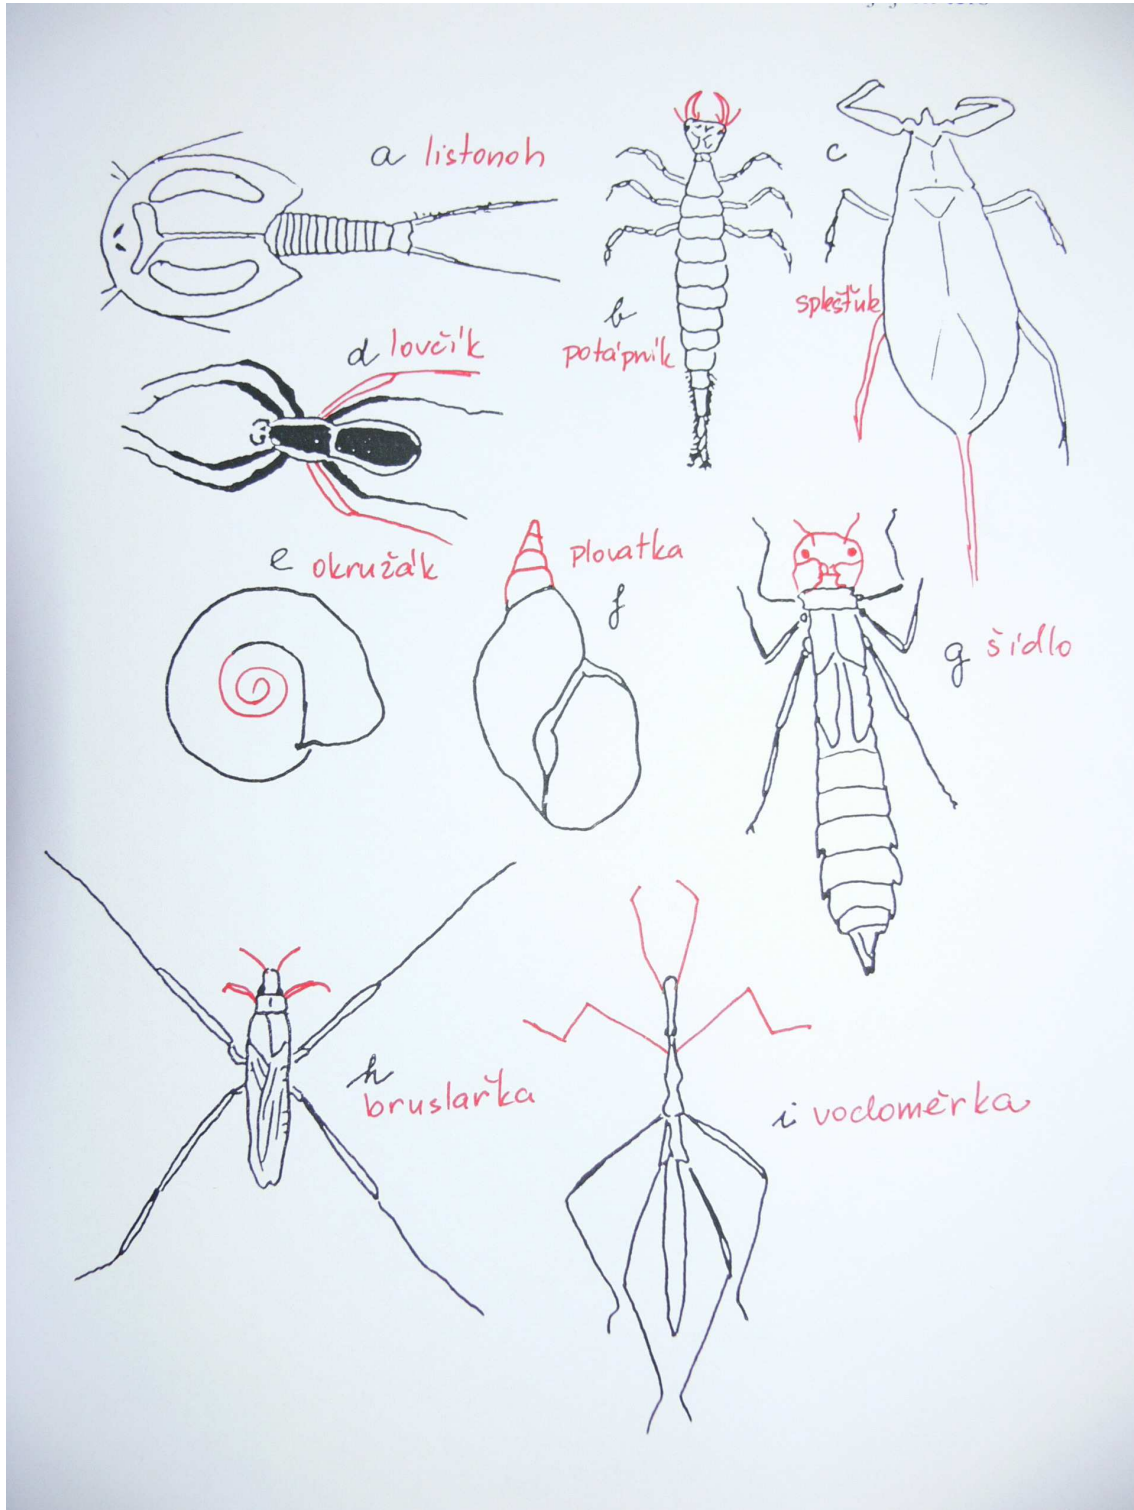 a listonoh
c
b
potápník
splešťule
d lovčík
e okružák
plovatka
f
g šídlo
h
bruslařka
i vodoměrka